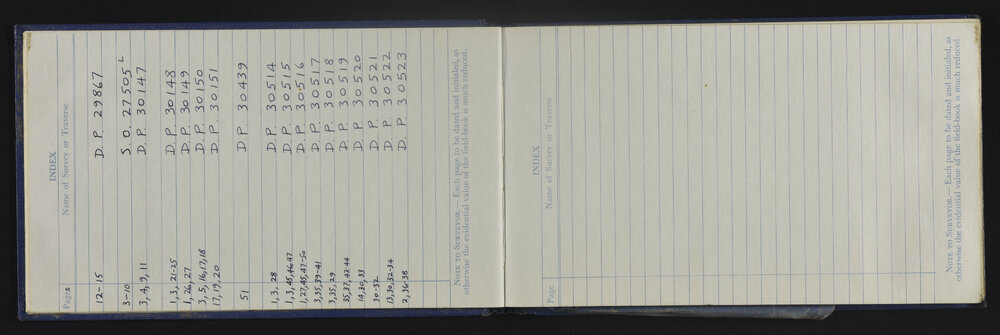 INDEX
Pages Name of Survey or Traverse
12-15 D.P. 29867
3-10 S.O. 27505 L
3, 4, 9, 11 D.P. 30147
1, 3, 21-25 D.P. 30148
1, 26, 27 D.P. 30149
3, 5, 16, 17, 18 D.P. 30150
17, 19, 20 D.P. 30151
51 D.P. 30439
1, 3, 28 D.P. 30514
1, 3, 45, 46, 47 D.P. 30515
1, 27, 45, 47-50 D.P. 30516
3, 35, 39-41 D.P. 30517
3, 35, 29 D.P. 30518
35, 37, 42-44 D.P. 30519
14, 30, 33 D.P. 30520
30-32 D.P. 30521
13, 30, 32-34 D.P. 30522
2, 36-38 D.P. 30523
NOTE TO SURVEYOR.—Each page to be dated and initialed, as
otherwise the evidential value of the field-book is much reduced.
INDEX
Page Name of Survey or Traverse
NOTE TO SURVEYOR.—Each page to be dated and initialed, as
otherwise the evidential value of the field-book is much reduced.